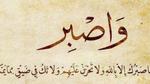 وَاصْبِر
وما صبرك إلا بالله ولا تحزن عليهم ولا تك في ضيق مما